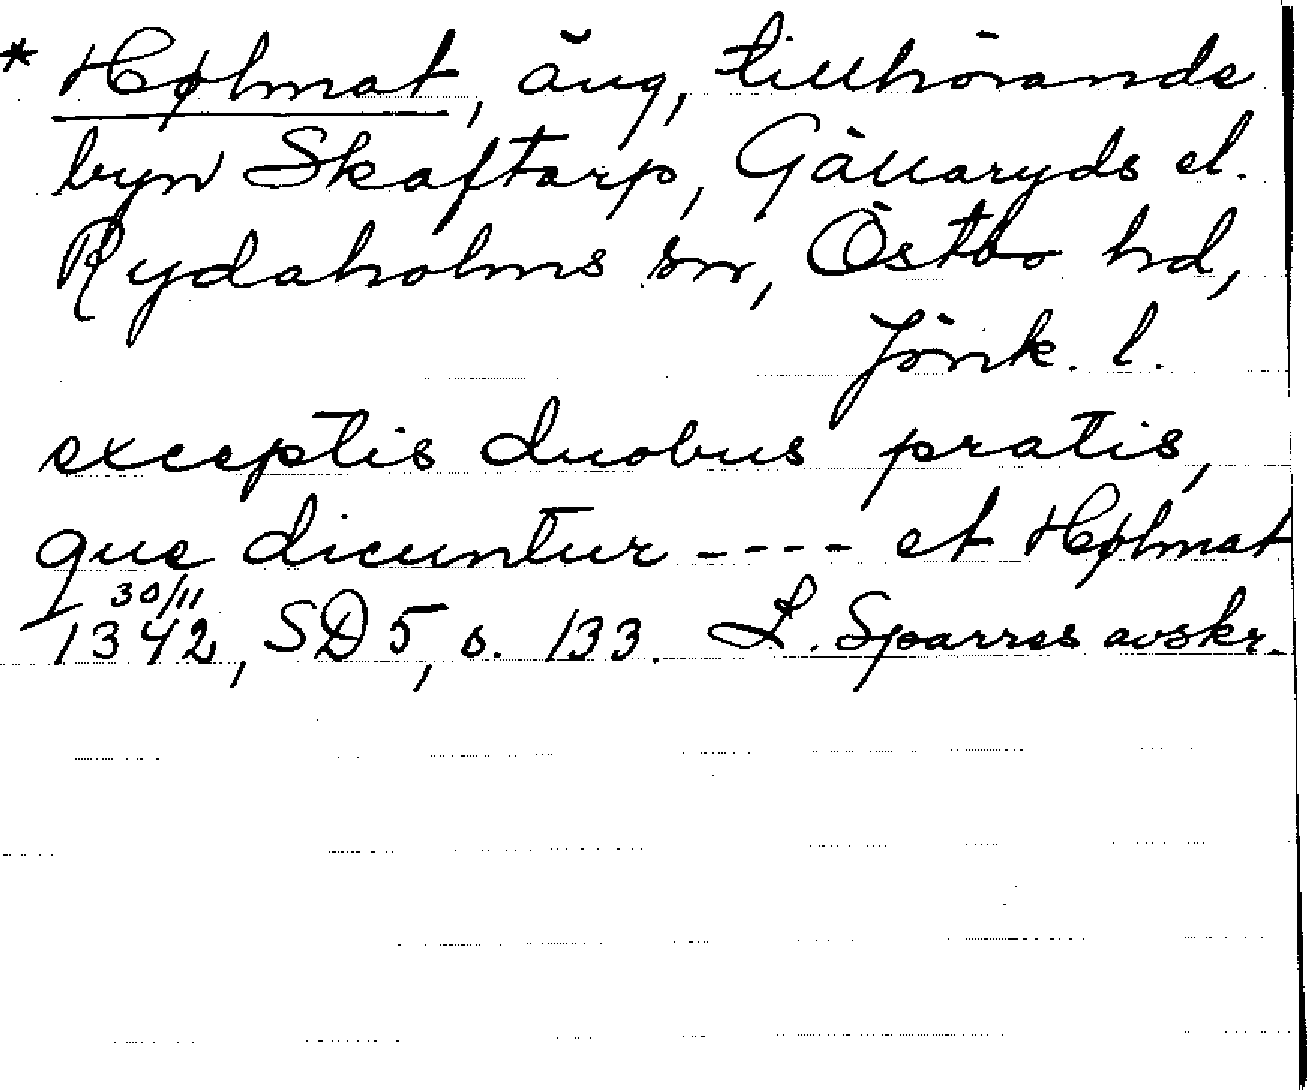 * Hølmat, äng, tillhörande
byn Skaftarp, Gällaryds el.
Rydaholms sn, Östbo hd,
Jönk. l.
exceptis duobus pratis,
que dicuntur ---- et Hølmat
30/11
1342, SD 5, s. 133. L. Sparres avskr.